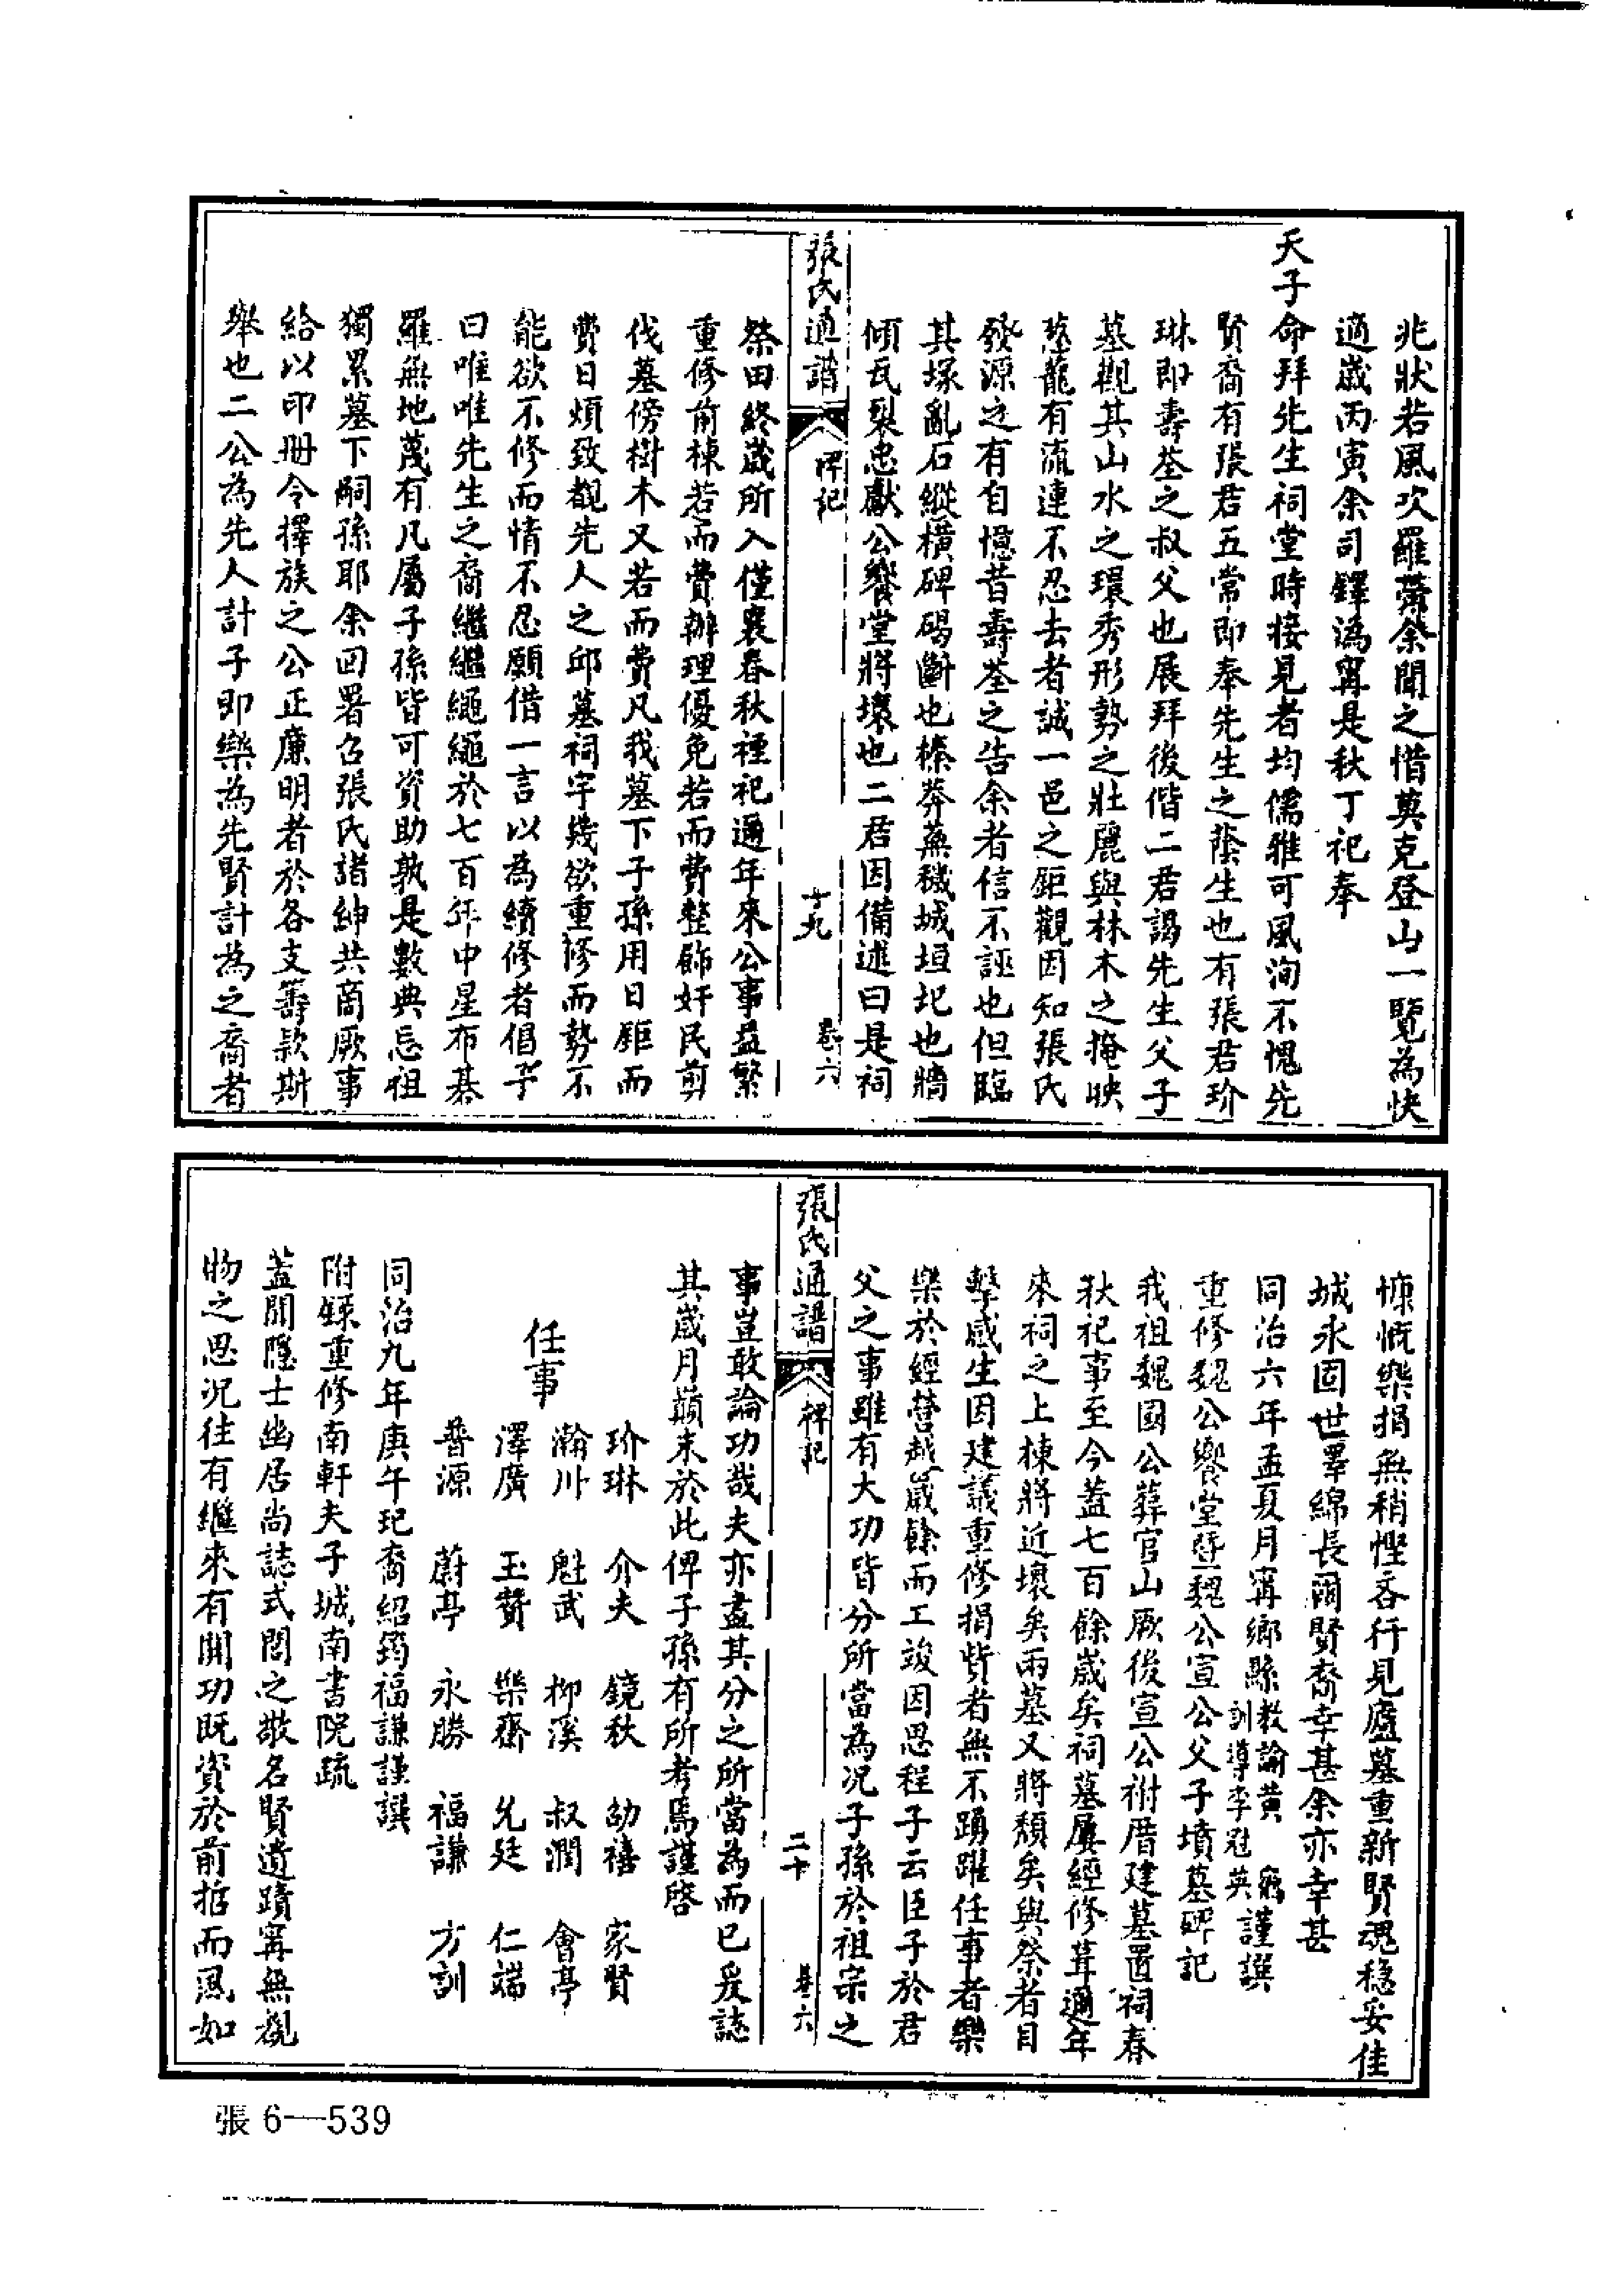 兆狀若風吹羅帶余聞之惜莫克登山一覽為快
適歲丙寅余司鐸溈甯是秋丁祀奉
天子命拜先生祠堂時接見者均儒雅可風洵不愧先
賢裔有張君五常即奉先生之蔭生也有張君玠
琳即壽荃之叔父也展拜後偕二君謁先生父子
墓觀其山水之環秀形勢之壯麗與林木之掩映
葱蘢有流連不忍去者誠一邑之鉅觀因知張氏
發源之有自憶昔壽荃之告余者信不誣也但臨
其塚亂石縱橫碑碣斷也榛莽蕪穢城垣圮也牆
傾瓦裂忠獻公饗堂將壞也二君因備述曰是祠
張氏通譜
碑記
十九
卷六
祭田終歲所入僅襄春秋禋祀邇年來公事益繁
重修前棟若而費辦理優免若而費整飭奸民剪
伐墓傍樹木又若而費凡我墓下子孫用日鉅而
費日煩致觀先人之邱墓祠宇幾欲重修而勢不
能欲不修而情不忍願借一言以為續修者倡予
曰唯唯先生之裔繼繼繩繩於七百年中星布碁
羅無地蔑有凡屬子孫皆可資助孰是數典忘祖
獨累墓下嗣孫耶余回署召張氏諸紳共商厥事
給以印冊令擇族之公正廉明者於各支籌款斯
舉也二公為先人計子即樂為先賢計為之裔者
慷慨樂捐無稍慳吝行見廬墓重新賢魂穩妥佳
城永固世澤綿長爾賢裔幸甚余亦幸甚
同治六年孟夏月甯鄉縣教諭黃 訓導李冠英謹譔
重修魏公饗堂暨魏公宣公父子墳墓碑記
我祖魏國公葬官山厥後宣公祔厝建墓置祠春
秋祀事至今蓋七百餘歲矣祠墓屢經修葺邇年
來祠之上棟將近壞矣兩墓又將頹矣與祭者目
擊感生因建議重修捐貲者無不踴躍任事者樂
樂於經營越歲餘而工竣因思程子云臣子於君
父之事雖有大功皆分所當為况子孫於祖宗之
張氏通譜
碑記
二十
卷六
事豈敢論功哉夫亦盡其分之所當為而已爰誌
其歲月巔末於此俾子孫有所考焉謹啓
玠琳 介夫 鏡秋 劭禧 家賢
瀚川 魁武 柳溪 叔潤 會亭
任事
澤廣 玉贊 樂齋 允廷 仁端
普源 蔚亭 永勝 福謙 方訓
同治九年庚午祀裔紹筠福謙謹譔
附錄重修南軒夫子城南書院疏
蓋聞隱士幽居尚誌式閭之敬名賢遺蹟甯無覩
物之思况往有繼來有開功既資於前哲而風如
張6—539